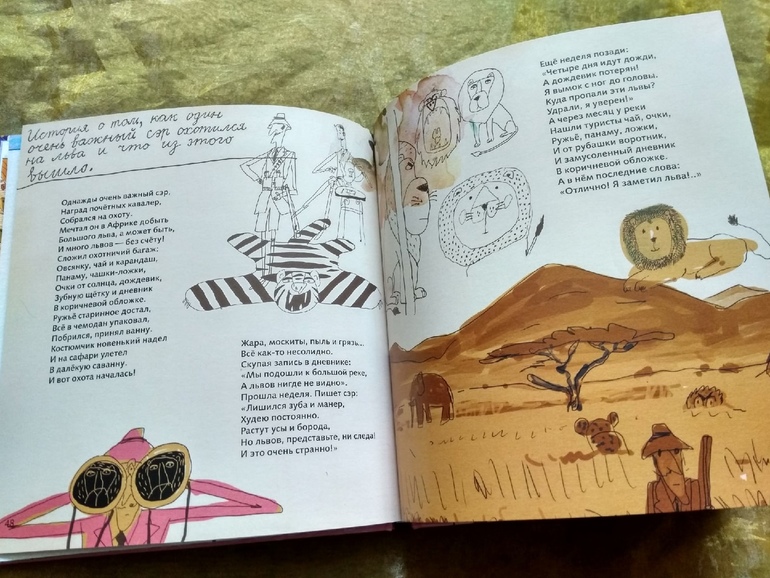 История о том, как один
очень важный сэр охотился
на льва и что из этого
вышло.
Однажды очень важный сэр,
Наград почётных кавалер,
Собрался на охоту.
Мечтал он в Африке добыть
Большого льва, а может быть,
И много львов — без счёту!
Сложил охотничий багаж:
Овсянку, чай и карандаш,
Панаму, чашки-ложки,
Очки от солнца, дождевик,
Зубную щётку и дневник
В коричневой обложке.
Ружьё старинное достал,
Всё в чемодан упаковал,
Побрился, принял ванну.
Костюмчик новенький надел
И на сафари улетел
В далёкую саванну.
И вот охота началась!
Жара, москиты, пыль и грязь...
Всё как-то несолидно.
Скупая запись в дневнике:
«Мы подошли к большой реке,
А львов нигде не видно».
Прошла неделя. Пишет сэр:
«Лишился зуба и манер,
Худею постоянно.
Растут усы и борода,
Но львов, представьте, ни следа!
И это очень странно!»
18
Ещё неделя позади:
«Четыре дня идут дожди,
А дождевик потерян!
Я вымок с ног до головы.
Куда пропали эти львы?
Удрали, я уверен!»
А через месяц у реки
Нашли туристы чай, очки,
Ружьё, панаму, ложки,
И от рубашки воротник,
И замусоленный дневник
В коричневой обложке.
А в нём последние слова:
«Отлично! Я заметил льва!..»